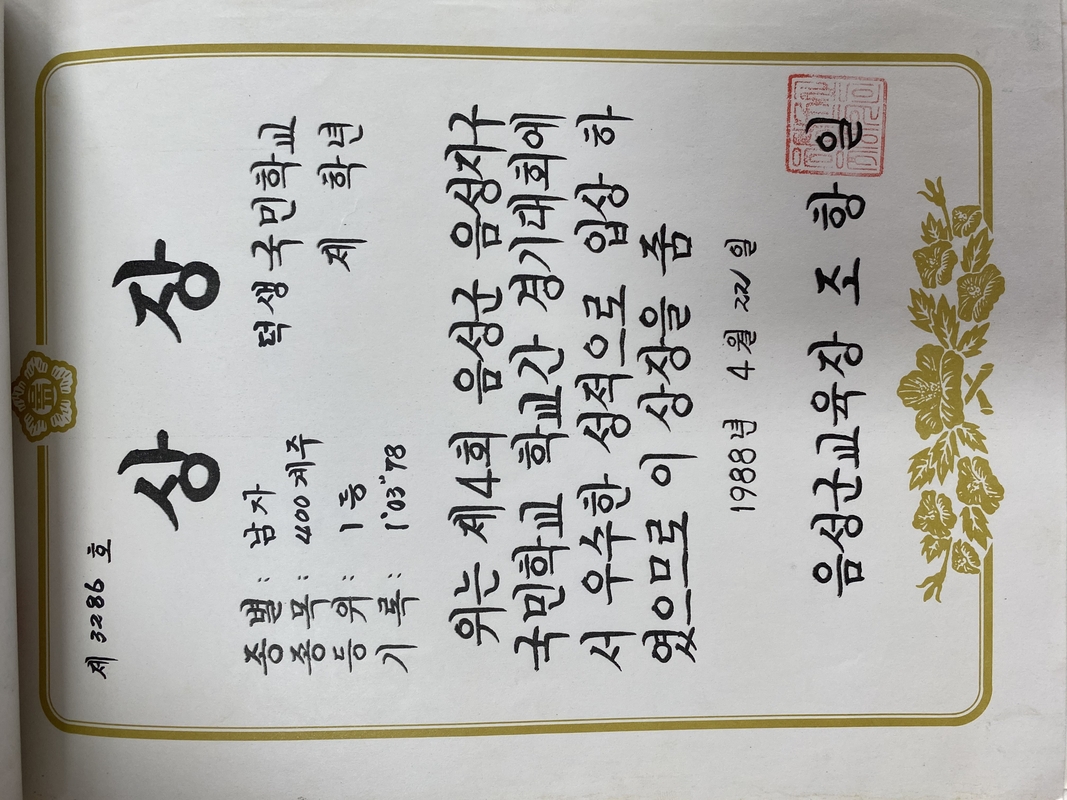 제 3286 호
상 장
종별 : 남자
종목 : 400계주
등위 : 1등
기록 : 1'03"78
덕생국민학교
제 학년
위는 제4회 음성군 음성지구
국민학교 학교간 경기대회에
서 우수한 성적으로 입상 하
였으므로 이 상장을 줌
1988년 4월 22일
음성군교육장 조 항 일